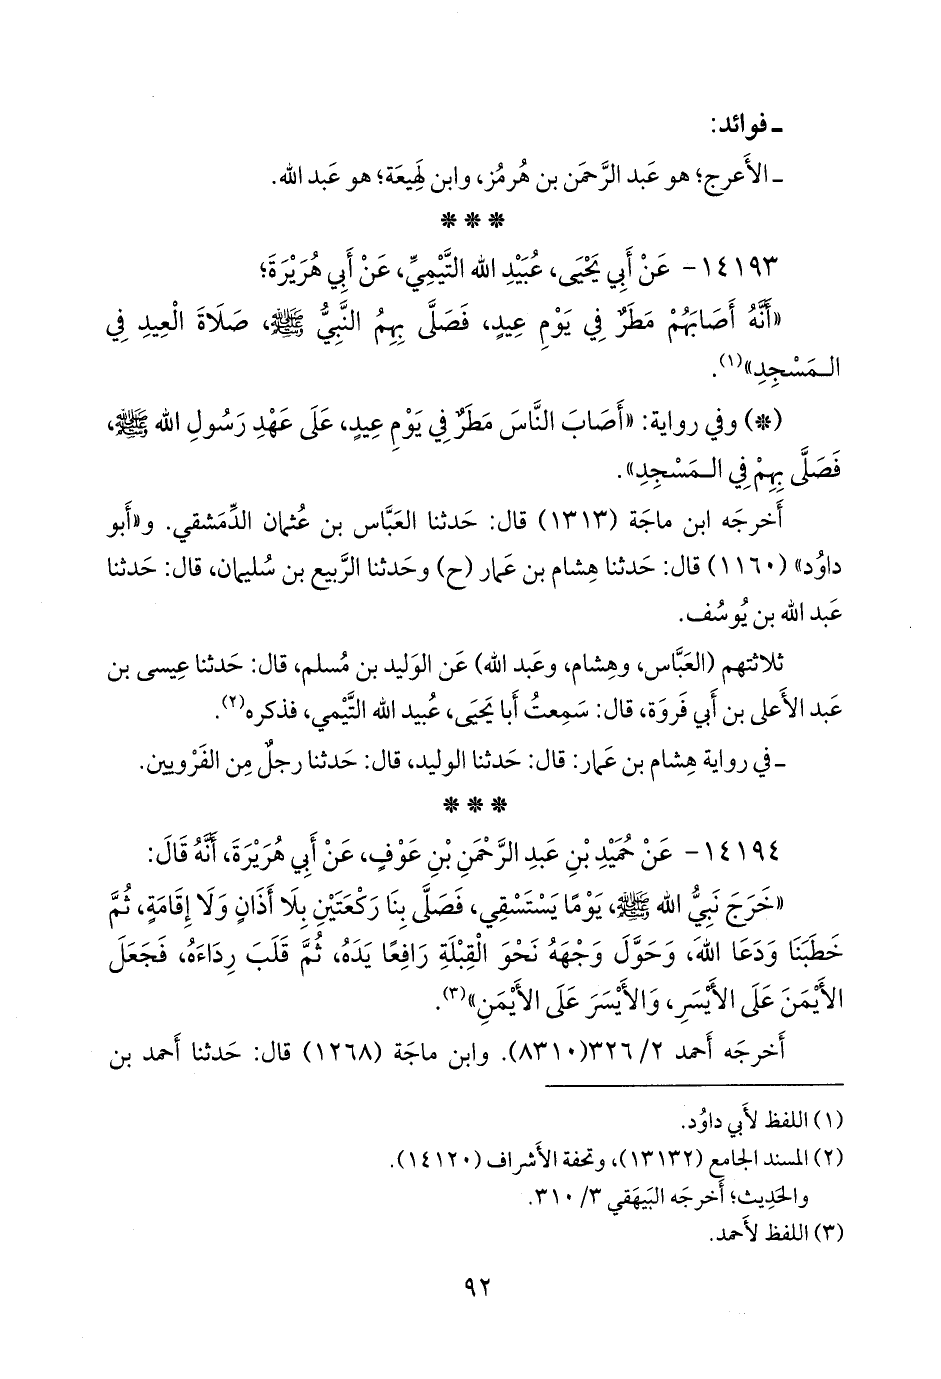 ـ فوائد:
ـ الأَعرج؛ هو عَبد الرَّحمَن بن هُرمُز، وابن لَهِيعَة؛ هو عَبد الله.
* * *
١٤١٩٣- عَنْ أَبِي يَحْيَى، عُبَيْدِ الله التَّيْمِيِّ، عَنْ أَبِي هُرَيْرَةَ؛
«أَنَّهُ أَصَابَهُمْ مَطَرٌ فِي يَوْمِ عِيدٍ، فَصَلَّى بِهِمُ النَّبِيُّ ﷺ، صَلَاةَ الْعِيدِ فِي
الـمَسْجِدِ»(١).
(*) وفي رواية: «أَصَابَ النَّاسَ مَطَرٌ فِي يَوْمِ عِيدٍ، عَلَى عَهْدِ رَسُولِ الله ﷺ،
فَصَلَّى بِهِمْ فِي الـمَسْجِدِ».
أَخرجَه ابن ماجَة (١٣١٣) قال: حَدثنا العَبَّاس بن عُثمان الدِّمَشقي. و«أَبو
داوُد» (١١٦٠) قال: حَدثنا هِشام بن عَمار (ح) وحَدثنا الرَّبيع بن سُليمان، قال: حَدثنا
عَبد الله بن يُوسُف.
ثلاثتهم (العَبَّاس، وهِشام، وعَبد الله) عَن الوَليد بن مُسلم، قال: حَدثنا عِيسى بن
عَبد الأَعلى بن أَبي فَروَة، قال: سَمِعتُ أَبا يَحيَى، عُبيد الله التَّيْمي، فذكره(٢).
ـ في رواية هِشام بن عَمار: قال: حَدثنا الوليد، قال: حَدثنا رجلٌ مِن الفَرْويين.
* * *
١٤١٩٤- عَنْ حُمَيْدِ بْنِ عَبدِ الرَّحْمَنِ بْنِ عَوْفٍ، عَنْ أَبِي هُرَيْرَةَ، أَنَّهُ قَالَ:
«خَرَجَ نَبِيُّ الله ﷺ، يَوْمًا يَسْتَسْقِي، فَصَلَّى بِنَا رَكْعَتَيْنِ بِلَا أَذَانٍ وَلَا إِقَامَةٍ، ثُمَّ
خَطَبَنَا وَدَعَا اللهَ، وَحَوَّلَ وَجْهَهُ نَحْوَ الْقِبْلَةِ رَافِعًا يَدَهُ، ثُمَّ قَلَبَ رِدَاءَهُ، فَجَعَلَ
الأَيْمَنَ عَلَى الأَيْسَرِ، وَالأَيْسَرَ عَلَى الأَيْمَنِ»(٣).
أَخرجَه أَحمد ٢/ ٣٢٦(٨٣١٠). وابن ماجَة (١٢٦٨) قال: حَدثنا أَحمد بن
(١) اللفظ لأَبي داوُد.
(٢) المسند الجامع (١٣١٣٢)، وتحفة الأَشراف (١٤١٢٠).
والحَدِيث؛ أَخرجَه البَيهَقي ٣/ ٣١٠.
(٣) اللفظ لأَحمد.
٩٢